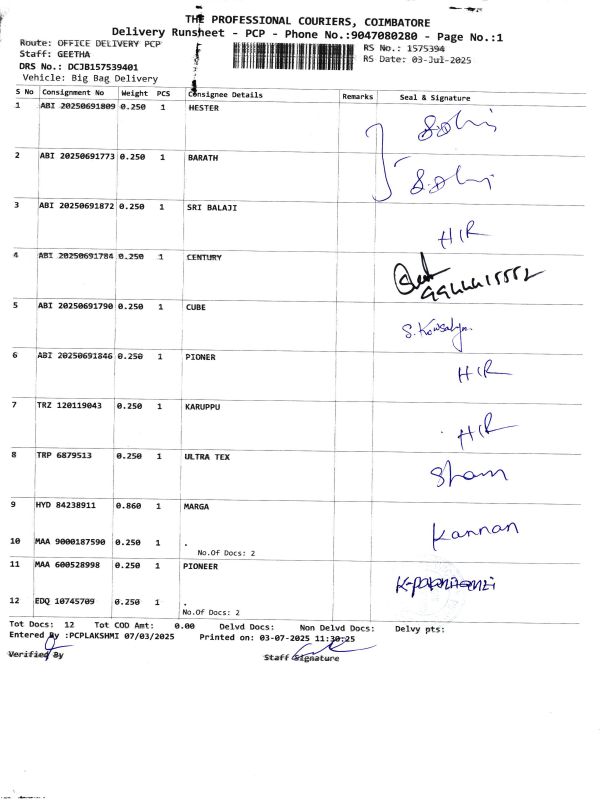 THE PROFESSIONAL COURIERS, COIMBATORE
Delivery Runsheet - PCP - Phone No.:9047080280 - Page No.:1
Route: OFFICE DELIVERY PCP
RS No.: 1575394
Staff: GEETHA
RS Date: 03-Jul-2025
DRS No.: DCJB157539401
Vehicle: Big Bag Delivery
S No Consignment No Weight PCS Consignee Details Remarks Seal & Signature
1 ABI 20250691809 0.250 1 HESTER
2 ABI 20250691773 0.250 1 BARATH
3 ABI 20250691872 0.250 1 SRI BALAJI
HIR
4 ABI 20250691784 0.250 1 CENTURY
5 ABI 20250691790 0.250 1 CUBE
S. Kowsalya
6 ABI 20250691846 0.250 1 PIONER
HIR
7 TRZ 120119043 0.250 1 KARUPPU
HIR
8 TRP 6879513 0.250 1 ULTRA TEX
Sham
9 HYD 84238911 0.860 1 MARGA
Kannan
10 MAA 9000187590 0.250 1 .
No.Of Docs: 2
11 MAA 600528998 0.250 1 PIONEER
12 EDQ 10745709 0.250 1 .
No.Of Docs: 2
Tot Docs: 12 Tot COD Amt: 0.00 Delvd Docs: Non Delvd Docs: Delvy pts:
Entered By :PCPLAKSHMI 07/03/2025 Printed on: 03-07-2025 11:30:25
Verified By Staff Signature